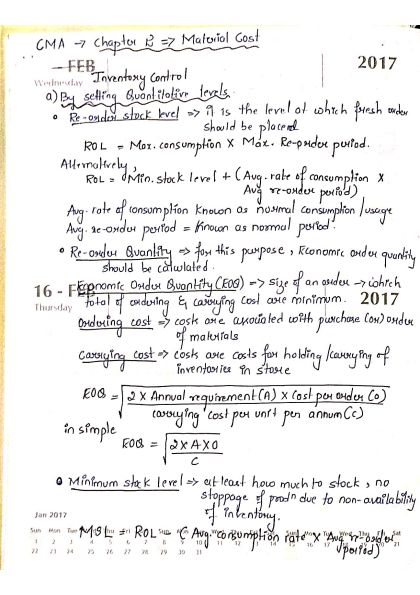 CMA → Chapter 2 => Material Cost
- FEB 2017
Wednesday Inventory Control
a) By setting Quantitative levels.
• Re-order stock level => it is the level at which fresh order
should be placed
ROL = Max. consumption X Max. Re-order period.
Alternatively,
ROL = Min. stock level + (Avg. rate of consumption X
Avg re-order period)
Avg. rate of consumption known as normal consumption / usage
Avg. re-order period = known as normal period.
• Re-order Quantity => for this purpose, Economic order quantity
should be calculated.
Economic Order Quantity (EOQ) => size of an order → which
16 - FEB total of ordering & carrying cost are minimum. 2017
Thursday
Ordering cost => costs are associated with purchase (or) order
of materials
Carrying cost => costs are costs for holding / carrying of
inventories in store
EOQ = √ 2 X Annual requirement (A) X Cost per order (O)
carrying cost per unit per annum (C)
in simple
EOQ = √ 2 X A X O
C
• Minimum stock level => at least how much to stock, no
stoppage of prodn due to non-availability
of inventory.
Jan 2017
MSL = ROL - (Avg. consumption rate X Avg re-order
period)
Sun Mon Tue
1 2 3 4 5 6 7 8 9 10 11 12 13 14 15 16 17 18 19 20 21
22 23 24 25 26 27 28 29 30 31